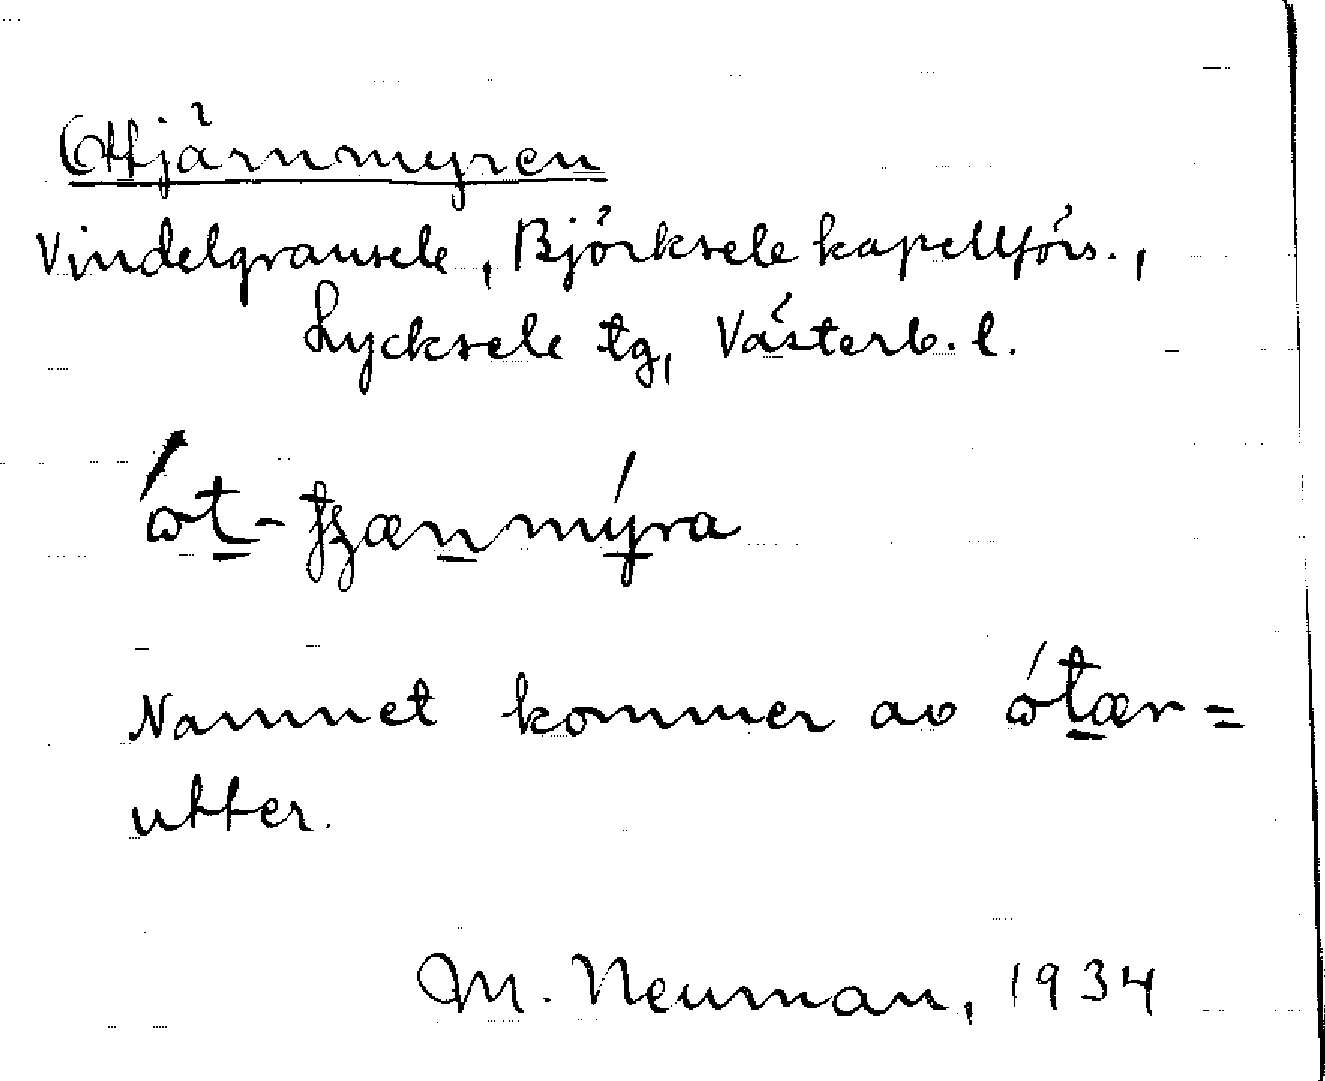 Ottjärnmyren
Vindelgransele, Björksele kapellförs.,
Lycksele tg, Västerb. l.
Namnet kommer av ótær =
utter.
M. Neuman, 1934